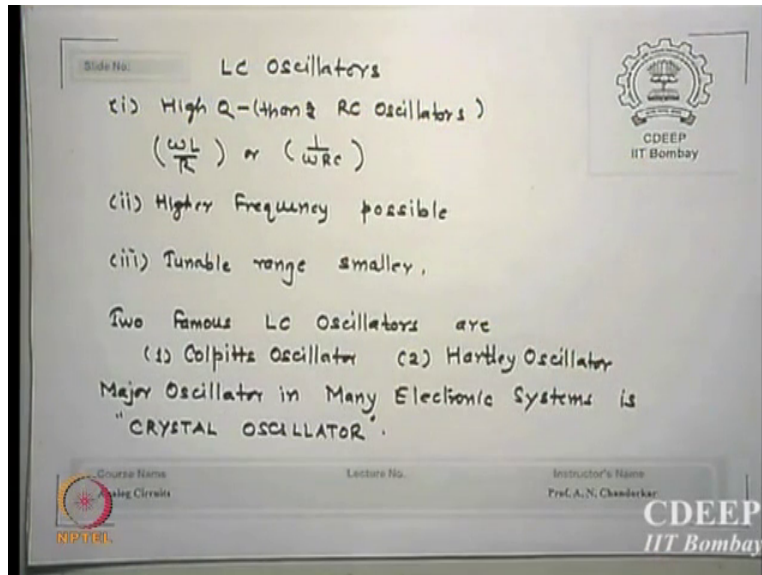 Slide No:
LC Oscillators
(i) High Q-(than RC Oscillators)
(ωL/R) or (1/ωRC)
(ii) Higher Frequency possible
(iii) Tunable range smaller.
Two Famous LC Oscillators are
(1) Colpitts Oscillator (2) Hartley Oscillator
Major Oscillator in Many Electronic Systems is
"CRYSTAL OSCILLATOR".
CDEEP
IIT Bombay
Course Name
Lecture No.
Instructor's Name
Analog Circuits
Prof. A. N. Chandorkar
NPTEL
CDEEP
IIT Bombay